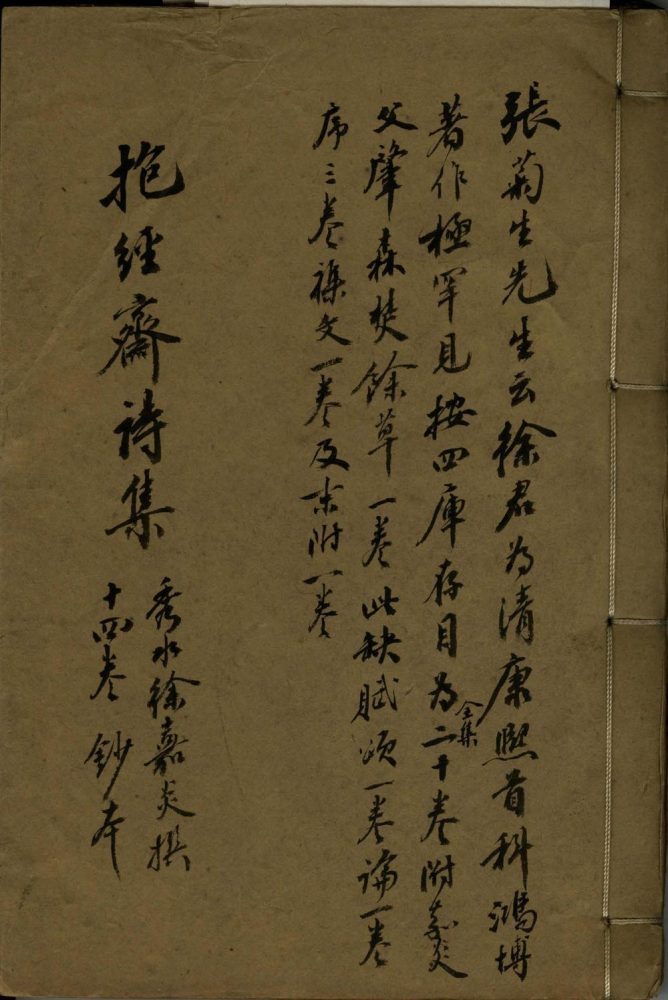 張菊生先生云徐君為清康熙首科鴻博
著作極罕見按四庫存目為全集二十卷附嘉炎
父肇森焚餘草一卷此缺賦頌一卷論一卷
序三卷雜文一卷及末附一卷
抱經齋詩集
秀水徐嘉炎撰
十四卷 鈔本